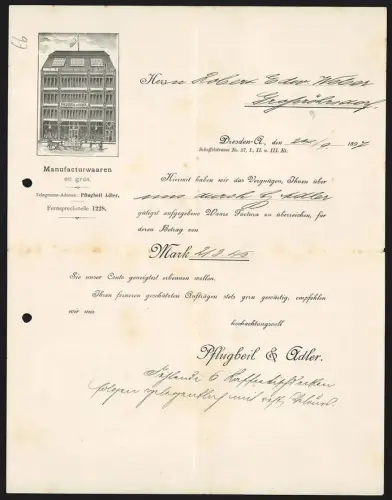 Manufacturwaaren
en gros.
Telegramm-Adresse: Pflugbeil Adler.
Fernsprechstelle 1228.
Herrn Robert Edw. Weber
Grossröhrsdorf
Dresden-A., den 1897
Scheffelstrasse No. 17, I., II. u. III. Et.
Hiermit haben wir das Vergnügen, Ihnen über
uns durch
gütigst aufgegebene Waare Factura zu überreichen, für
deren Betrag von
Mark 213.45
Sie unser Conto geneigtest erkennen wollen.
Ihren ferneren geschätzten Aufträgen stets gern gewärtig, empfehlen
wir uns
hochachtungsvoll
Pflugbeil & Adler.
Fehlende 6
folgen gelegentlich mit